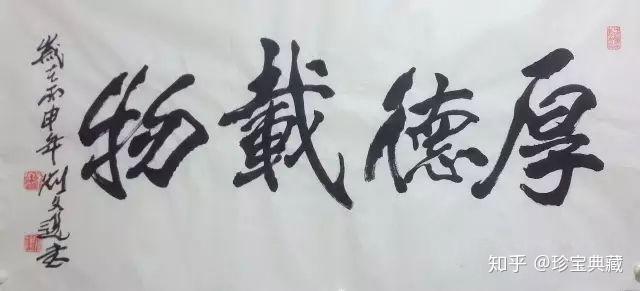 厚德載物
歲在丙申年刘文選书
知乎 @珍宝典藏